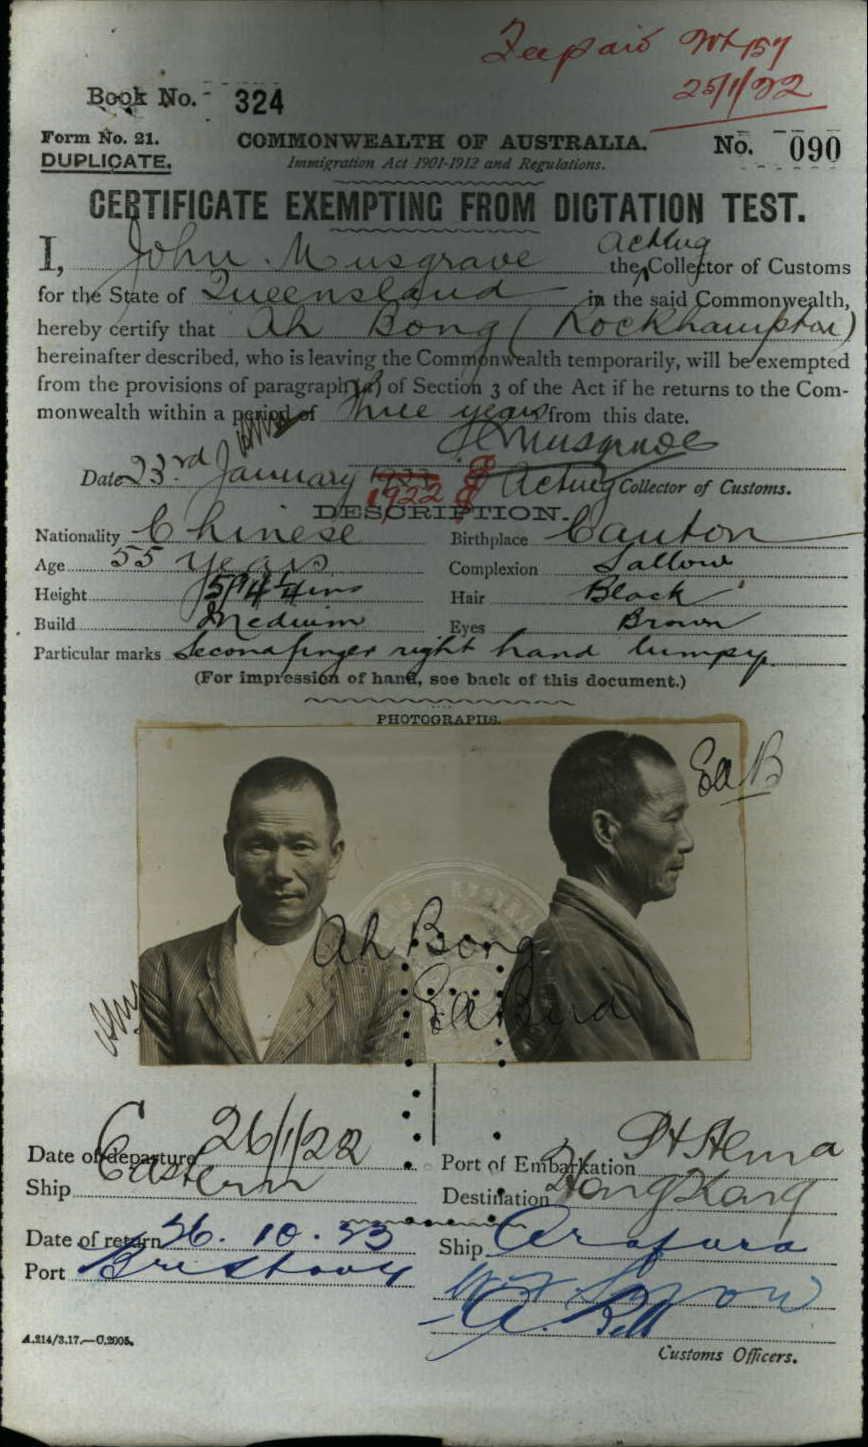 Feepaid
25/1/22
Book No. - 324
Form No. 21.
COMMONWEALTH OF AUSTRALIA.
No. 090
DUPLICATE.
Immigration Act 1901-1912 and Regulations.
CERTIFICATE EXEMPTING FROM DICTATION TEST.
I, John Musgrave the Acting Collector of Customs
for the State of Queensland in the said Commonwealth,
hereby certify that Ah Bong (Rockhampton)
hereinafter described, who is leaving the Commonwealth temporarily, will be exempted
from the provisions of paragraph (a) of Section 3 of the Act if he returns to the Com-
monwealth within a period of three years from this date.
J Musgrave
Date 23rd January 1922 Acting Collector of Customs.
DESCRIPTION.
Nationality Chinese Birthplace Canton
Age 55 years Complexion Sallow
Height 5ft 4 1/4 ins Hair Black
Build Medium Eyes Brown
Particular marks Second finger right hand lumpy.
(For impression of hand, see back of this document.)
PHOTOGRAPHS.
Ea B
Ah Bong
Ea Bird
Date of departure 26/1/22 Port of Embarkation
Ship Eastern Destination Hong Kong
Date of return 26.10.23 Ship Arafura
Port Brisbane
A. Bell
A.214/3.17.—C.2005.
Customs Officers.